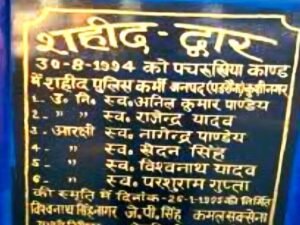 शहीद-द्वार
30-8-1994 को पचरुखिया काण्ड
में शहीद पुलिस कर्मी जनपद (पडरौना) कुशीनगर
1- उ. नि. स्व. अनिल कुमार पाण्डेय
2- " " स्व. राजेन्द्र यादव
3- आरक्षी स्व. नागेन्द्र पाण्डेय
4- " स्व. खेदन सिंह
5- " स्व. विश्वनाथ यादव
6- " स्व. परशुराम गुप्ता
की स्मृति में दिनांक-26-1-1995 को निर्मित
विश्वनाथ सिंह जे.पी. सिंह कमल सक्सेना